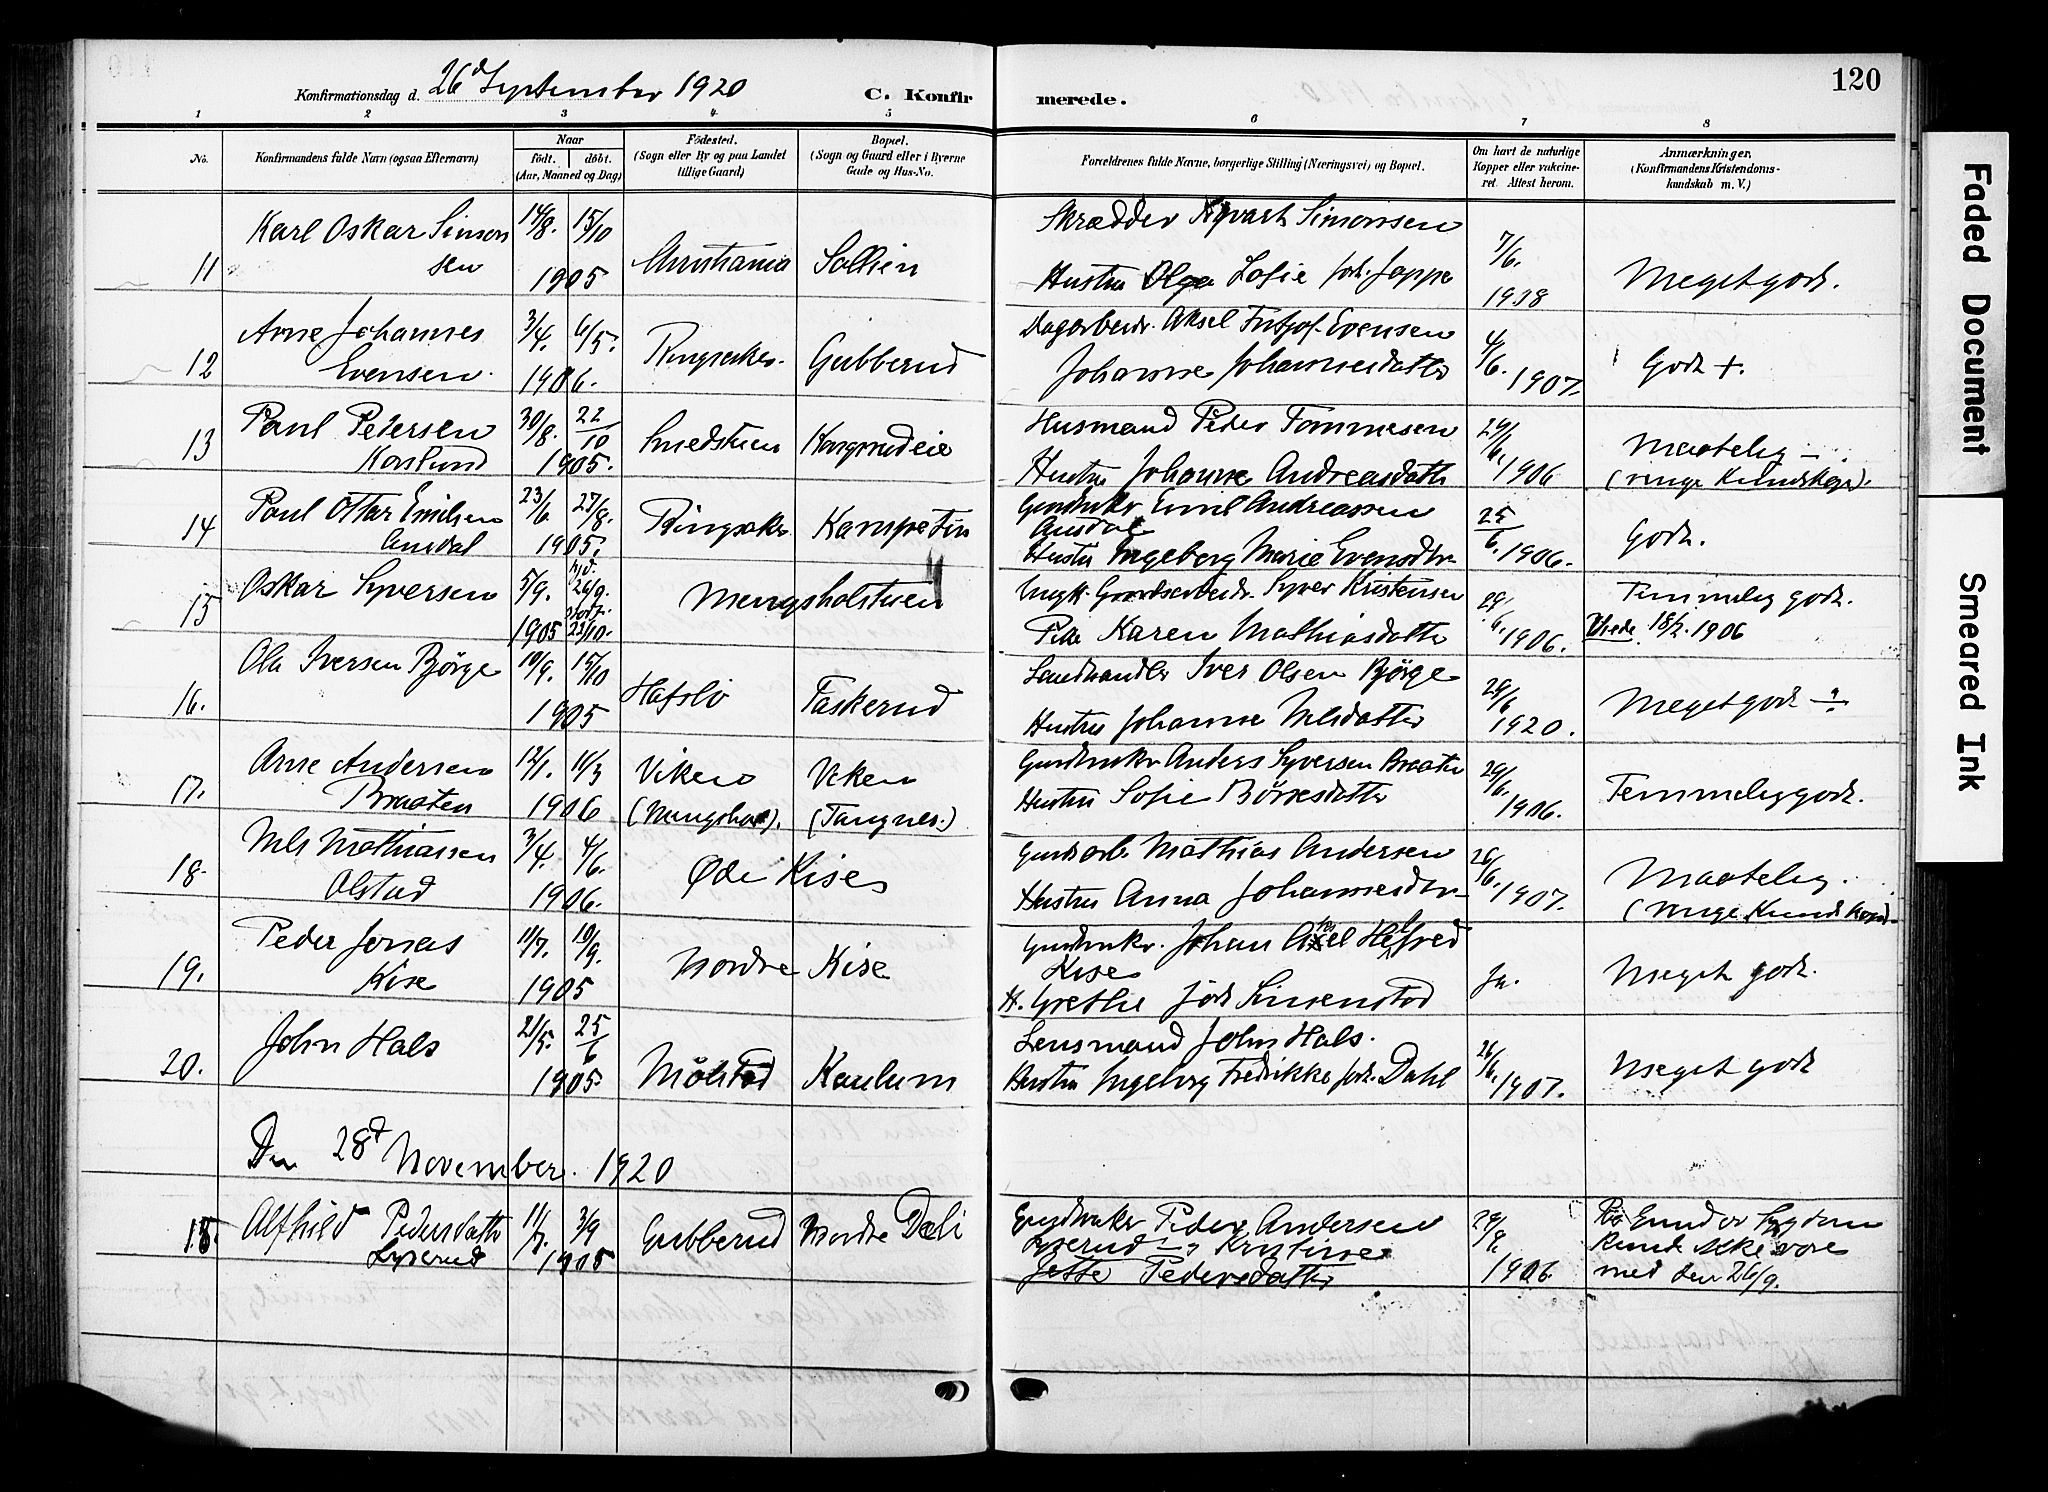 120
Konfirmationsdag d. 26d September 1920 C. Konfirmerede.
1 2 3 4 5 6 7 8
No.
Konfirmandens fulde Navn (ogsaa Efternavn)
Naar
født. døbt.
(Aar, Maaned og Dag)
Fødested.
(Sogn eller By og paa Landet
tillige Gaard)
Bopæl.
(Sogn og Gaard eller i Byerne
Gade og Hus-No.
Forældrenes fulde Navne, borgerlige Stilling (Næringsvei) og Bopæl.
Om havt de naturlige
Kopper eller vakcine-
ret. Attest herom.
Anmærkninger.
(Konfirmandens Kristendoms-
kundskab m. V.)
Karl Oskar Simon 14/8. 15/10 Skrædder Simonsen 7/6.
11 sen 1905 Christiania Sollien Hustru Olga Sofie født Joppe 1918 Meget godt.
Arne Johannes 3/4. 6/5. Dagarbeidr. Aksel Fritjof Evensen 4/6.
12 Evensen. 1906. Ringsaker. Gubberud Johanne Johannesdatter 1907. Godt +.
Paul Petersen 30/8. 22/10 Husmand Peder Tommesen 29/6.
13 Korslund 1905. Smedstuen Korsgrudeie Hustru Johanne Andreasdatter 1906 Maatelig -.
(ringe Kundskap).
Paul Ottar Emilsen 23/6. 27/8. Gaardbruker Emil Andreassen 25/6.
14 Ausdal 1905. Ringsaker Kampetun Ausdal
Hustru Ingeborg Marie Evensdtr. 1906. Godt.
Oskar Syversen 5/9. 26/9. Ungk. Gaardsarbeidr. Syver Kristensen 29/6. Temmelig godt.
15 1905 23/10. Mengsholstuen Pike Karen Mathiasdatter 1906. 18/2. 1906
Ola Iversen Bjørge 10/9. 15/10 Landhandler Iver Olsen Bjørge 29/6
16. 1905 Hafslo Taskerud Hustru Johanne Nilsdatter 1920. Meget godt -
Arne Andersen 12/1. 11/3 Viken Viken Gaardbruker Anders Syversen Braaten 29/6.
17. Braaten 1906 (Mengshol). (Tangnes.) Hustru Sofie Børresdatter 1906. Temmelig godt.
Nils Mathiassen 3/4. 4/6. Gaardsarb. Mathias Andersen 26/6.
18. Olstad 1906. Øde Kise Hustru Anna Johannesdtr. 1907. Maatelig.
(ringe Kundskap).
Peder Jonas 11/7. 10/9. Gaardbruker. Johan Axel Helfred
19. Kise 1905 Nordre Kise Kise
H. Grethe født Simenstad Ja. Meget godt.
John Hals 21/5. 25/6 Lensmand John Hals. 26/6.
20. 1905 Molstad Kaulum Hustru Ingeborg Fredrikke født Dahl 1907. Meget godt
Den 28d November. 1920
15. Alfhild Pedersdatter 11/7. 3/9 Gubberud Nordre Dæli Gaardbruker Peder Andersen 29/9.
Lyserud 1905 Lyserud og Kristine
Jette Pedersdatter 1906. Paa Grund av Sygdom
kunde ikke være
med den 26/9.
Faded Document
Smeared Ink